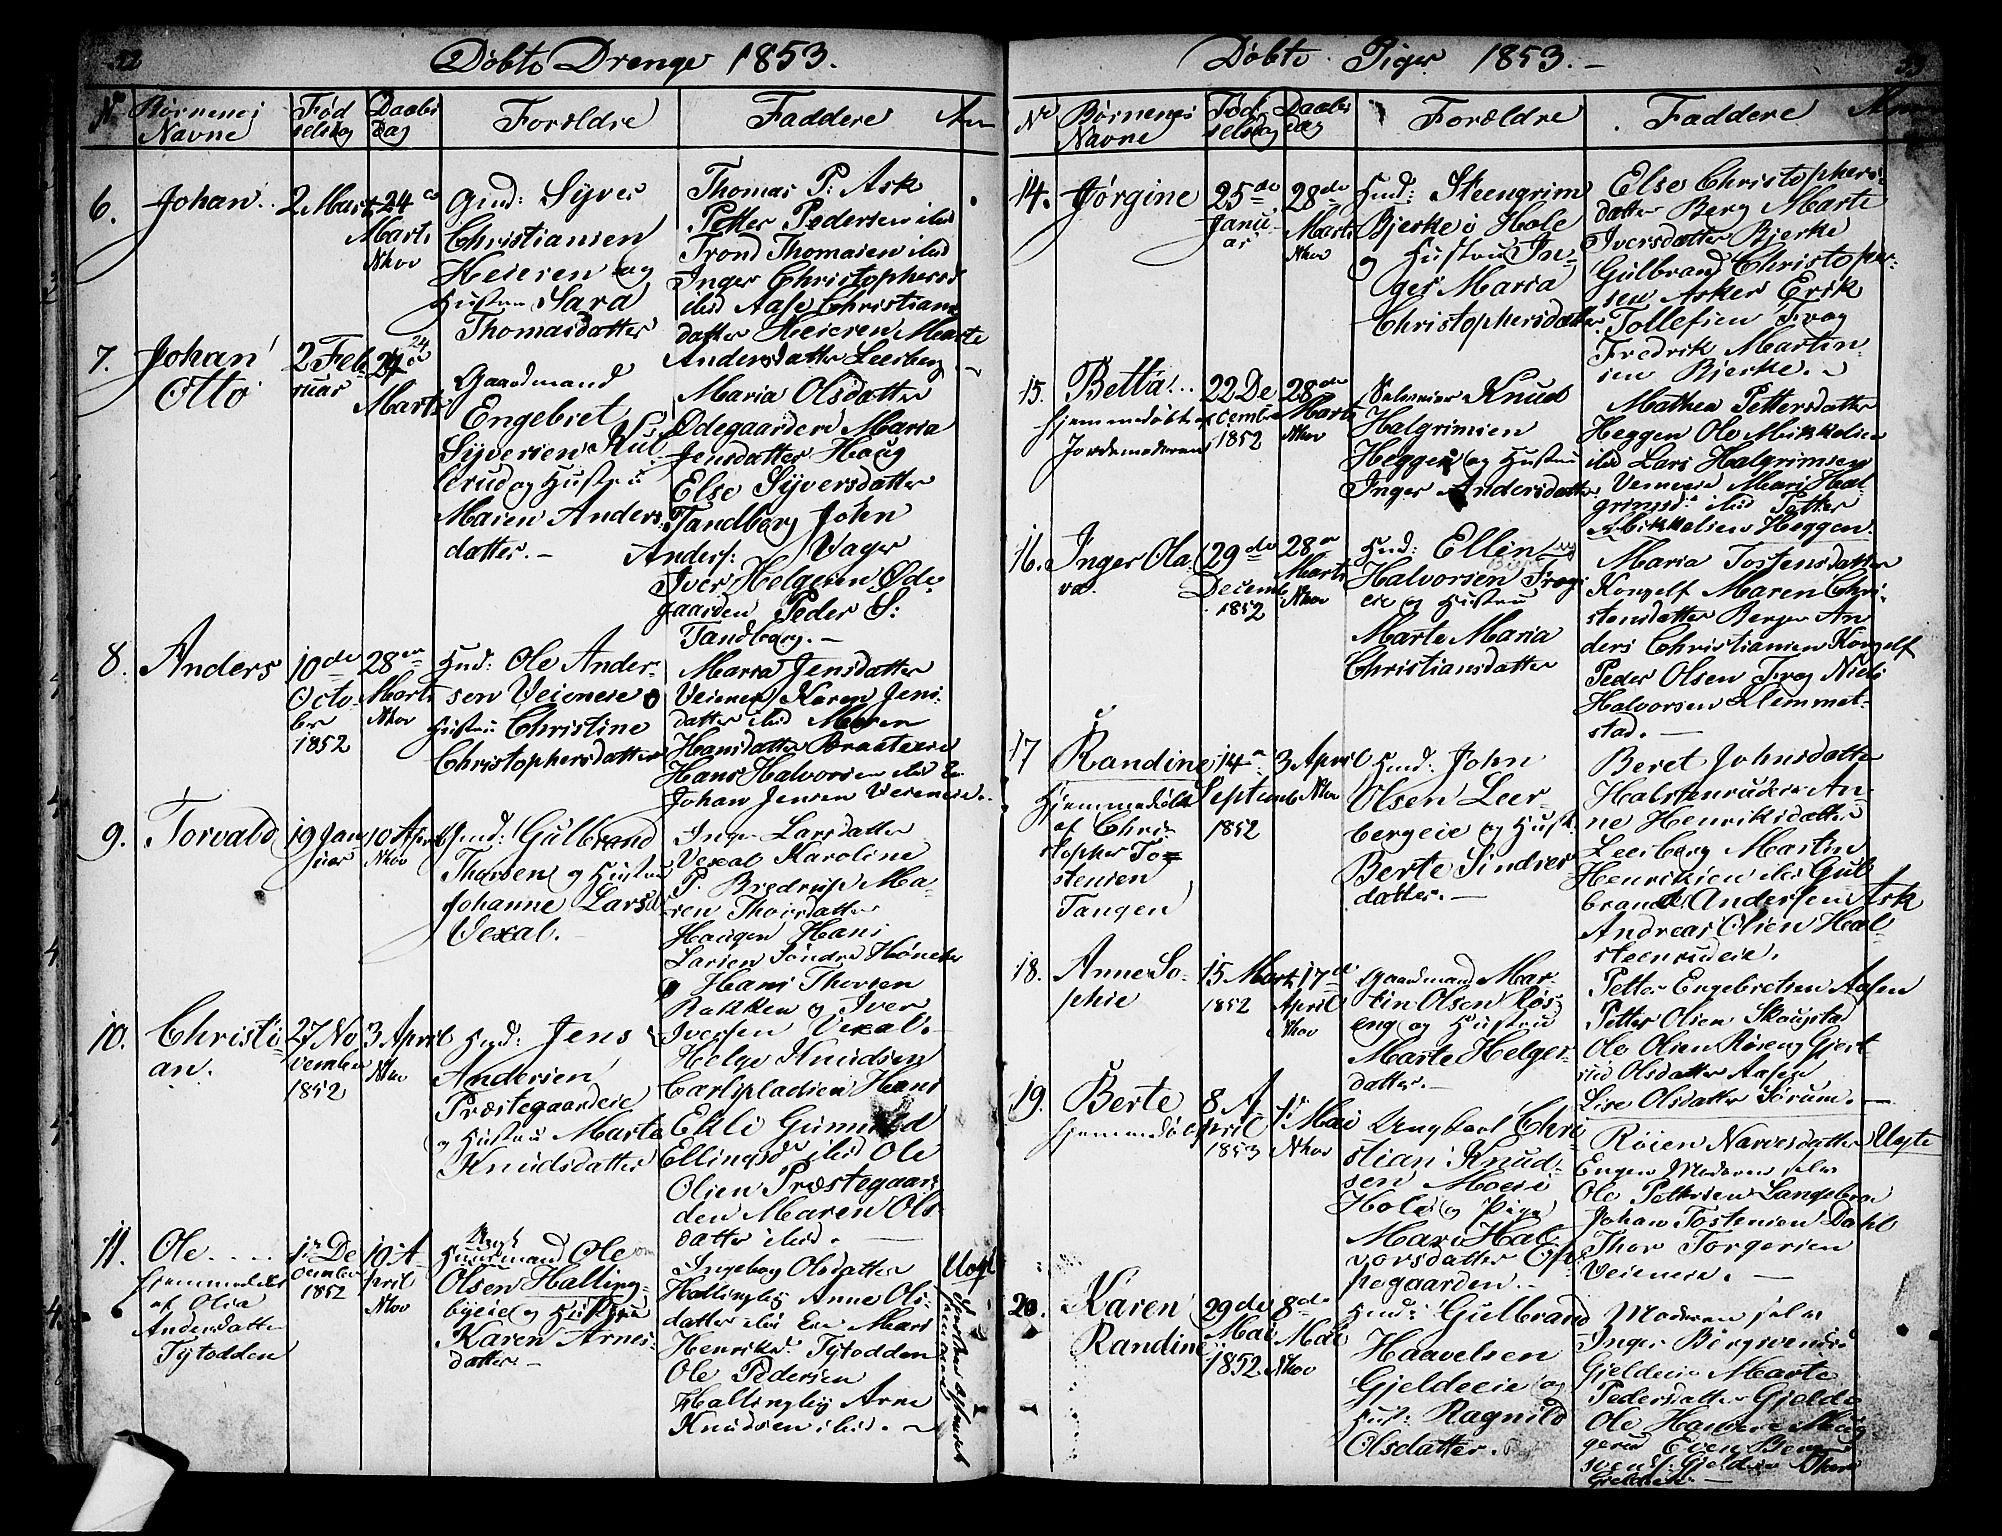 Døbte Drenge 1853.
No Børnenes Navne
Fødselsdag
Daabs Dag
Forældre
Faddere
6.
Johan
2 Marts
24 Marts
Nhov
Gmd: Syver
Christiansen
Heieren og
Hustru Sara
Thomasdatter
Thomas P: Ask
Petter Pedersen ibid
Trond Thomasen ibid
Inger Christophersd
ibid Aase Christians
datter Heieren Marte
Andersdatter Leerberg
7.
Johan
Otto
2 Feb
ruar
24
Marts
Gaardmand
Engebret
Syversen
rud og Hustru
Maren Anders
datter.
Maria Olsdatter
Ødegaarden Maria
Jensdatter Haug
Else Syversdatter
Tandberg John
Anders: Vager
Iver Helgesen Øde
gaarden Peder S:
Tandberg.
8.
Anders
10de
Octo
ber
1852
28
Marts
Nhov
Hmd: Ole Ander-
sen Veieneie o
Hustru Christine
Christophersdatter
Maria Jensdatter
Veienen Karen Jens
datter ibid Maren
Hansdatter
Hans Halvorsen ibid
Johan Jensen Veieneie.
9.
Torvald
19 Jan
uar
10 April
Nhov
Hmd: Gulbrand
Thorsen og Hustru
Johanne Larsd
Vexal.
Inger Larsdatter
Vexal Karoline
P: Bredrup Ma-
ren Thorsdatter
Haugen Hans
Larsen Søndre Hønen
Hans Thorsen
Rakken og Iver
Iversen Vexal.
10.
Christi
an.
27 No
vember
1852
3 April
Nhov
Hmd: Jens
Andersen
Præstegaardeie
og Hustru Marte
Knudsdatter
Helge Knudsen
Carlspladsen Hans
Ekli Gunnild
Ellingsd ibid Ole
Olsen Præstegaar
den Maren Ols
datter ibid.
11.
Ole
Hjemmedøbt
af Olia
Andersdatter
Tytodden
1ste De
cember
1852
10 A
pril
Nhov
Huusmand Ole
Olsen Halling-
byeie og Hustru
Karen Arnes-
datter
Ingeborg Olsdatter
Hallingby Anne Ols
datter ibid Mari
Henriksd Tytodden
Ole Pedersen
Hallingby Arne
Knudsen ibid.
Døbte Piger 1853.
33
No Børnenes Navne
Fødselsdag
Daabs Dag
Forældre
Faddere
14.
Jørgine
25de
Janu
ar
28de
Marts
Nhov
Hmd: Steengrim
Bjerke i Hole
og Hustru In-
ger Maria
Christophersdatter
Else Christophers-
datter Berg Marte
Iversdatter Bjerke
Gulbrand Christopher-
sen Asker Erik
Tollefsen Frog
Fredrik Martin-
sen Bjerke.
15.
Betta
Hjemmedøbt
Jordemoderen
22 De
cember
1852
28de
Marts
Nhov
Selveier Knud
Halgrimsen
Heggen og Hustru
Inger Andersdatter
Mathea Pettersdatter
Heggen Ole Mikkelsen
ibid Lars Halgrimsen
Mari Hal
grimsd: ibid Petter
Mikkelsen Heggen.
16.
Inger Ola
va.
29de
Decemb
1852
28
Marts
Nhov
Hmd: Ellin
Halvorsen Frog
eie og Hustru
Marte Maria
Christiansdatter
Maria Tostensdatter
Korself Maren Chri-
stensdatter Berger An
ders Christiansen Korself
Peder Olsen Frog Niels
Halvorsen Klemmet-
stad.
17
Randine
Hjemmedøbt
af Chri
stopher To
stensen
Tangen
14
Septemb
1852
3 April
Nhov
Hmd: John
Olsen Leer-
bergeie og Hust:
Berte Sindres
datter.
Beret Johnsdatter
Halstenrudeie An-
ne Henriksdatter
Leerberg Martin
Henriksen ibid Gul
brand Andersen Ask
Andreas Olsen Hal
steenrudeie.
18.
Anne So-
phie
15 Marts
1852
17de
April
Nhov
Gaardmand Mar-
tin Olsen Røs
eng og Hustru
Marte Helger-
datter.
Petter Engebretsen Aasen
Petter Olsen Skougstad
Ole Olsen Røseng Gjert
rud Olsdatter Aasen
Lise Olsdatter Sørum.
19.
Berte
Hjemmedøbt
8 A
pril
1853
1ste Mai
Nhov
Ungkarl Chri-
stian Knud-
sen Moeie
Hole og Pige
Mari Hal
vorsdatter Op
pegaarden.
Røien Narvesdatter
Engen Moderen selv
Ole Pettersen Langebro
Johan Tostensen Dahl
Thor Torgersen
Veieneie.
Uegte
20.
Karen
Randine
29de
Mai
1852
8de
Mai
Nhov
Hmd: Gulbrand
Haavelsen
Gjeldeeie og
Hust: Ragnild
Olsdatter.
Moderen selv
Inger Bergsvensd
Gjeldeeie Marte
Pedersdatter Gjelde
Ole Hansen
gerud Even Berg
svends: Gjeldeie Thor